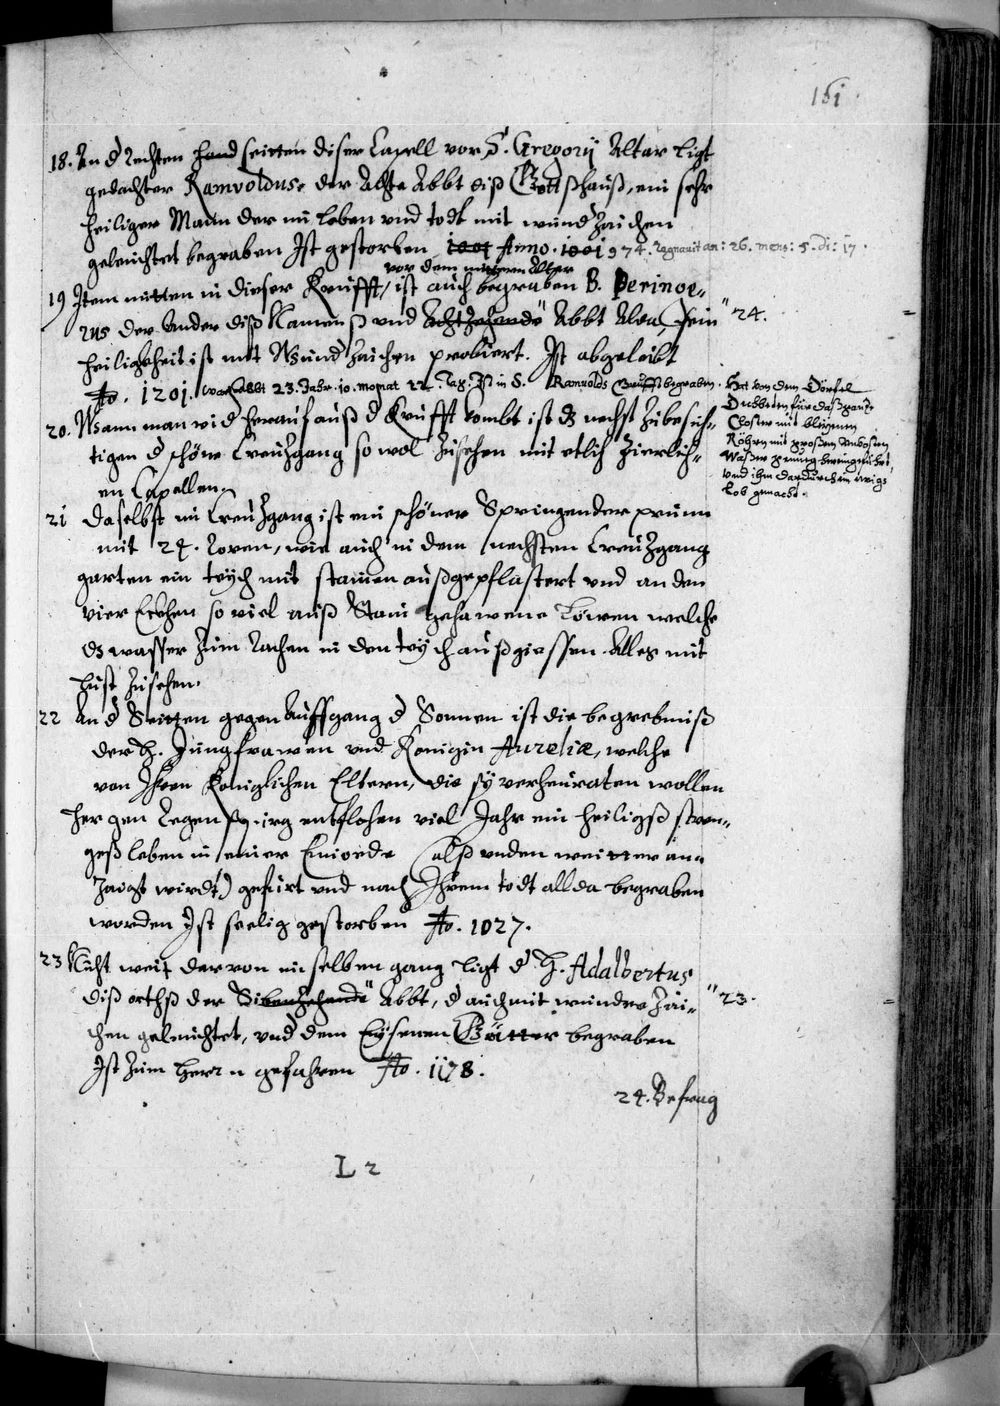 161
18. An d Rechten hand seitten diser Capell vor S. Gregorij Altar ligt
gedachter Ramvoldus der Achte Abbt diß Gottßhauß, ein sehr
heiliger Mann der im leben vnd todt mit wund Zaichen
geleuchtet begraben Ist gestorben 1001 Anno. 1001 974. Regnavit an: 26. mens: 5. di: 17.
vor dem mittern Altar
19 Item mitten in dieser Krufft, ist auch begraben B. Peringe„
rus der Ander diß Namenß vnd Achtzehende" Abbt Alda, sein
"24.
heiligkheit ist mit Wund Zaichen probiert. Ist abgeleibt
Ao. 1201. war Abbt 23. Jahr. 10. monat 22. Tag. Ist in S. Ramvolds Grufft begraben.
Hat von dem Dörfel
Dubbrun für daß gantz
Closter mit bleynen
Röhrn mit großen Unkosten
Waßer prunig hereingefürt,
vnd ihm dardurch ein ewigs
lob gemacht.
20. Wann man wid herauf auß d Krufft kombt ist dz nechst Zubesich„
tigen d schöne Creutzgang so wol Zusehen mit etlich Zierlich„
en Capellen.
21 Daselbst im Creutzgang ist ein schöner Springender prunn
mit 24. Roren, wie auch in dem nechsten Creutzgang
garten ein teych mit stainen außgepflastert vnd an den
vier Eckhen so viel auß Stain gehawene Löwen welche
dz wasser Zum Rachen in den teych außgiessen. Alles mit
lust Zusehen.
22 An d Seitten gegen Auffgang d Sonnen ist die begrebniß
der H. Jungfrawen vnd Konigin Aureliæ, welche
von Ihren Koniglichen Eltern, die sy verheuraten wollen
her gen Regenspurg entflohen viel Jahr ein heiligß stren„
geß leben in einer Einoede (alß vnden weitter an„
Zaigt wirdt) gefürt vnd nach Ihrem todt allda begraben
worden Ist seelig gestorben Ao. 1027.
23 Nicht weit darvon im selben gang ligt d H. Adalbertus
diß orthß der Sibenzehende" Abbt, d auch mit wunder Zai„
"23.
chen geleuchtet, vnd dem Eysenen Gätter begraben
Ist Zum Herrn gefahren Ao. 1178.
24. Befraug
L 2